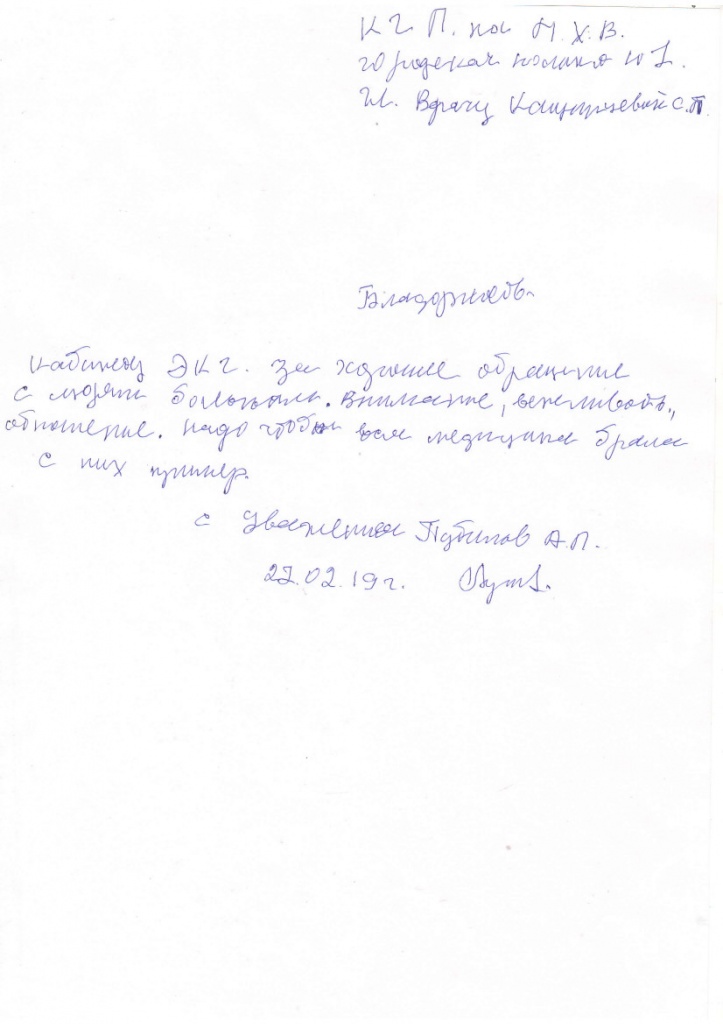 КГП. на П.Х.В.
городская
Гл. Врачу С.П.
Благодарность
Кабинету ЭКГ. За хорошее обращение
с людми больными. Внимание, вежливость,
отношение. надо чтобы вся медицина брала
с них пример.
с Уважением А.П.
27.02.19г.